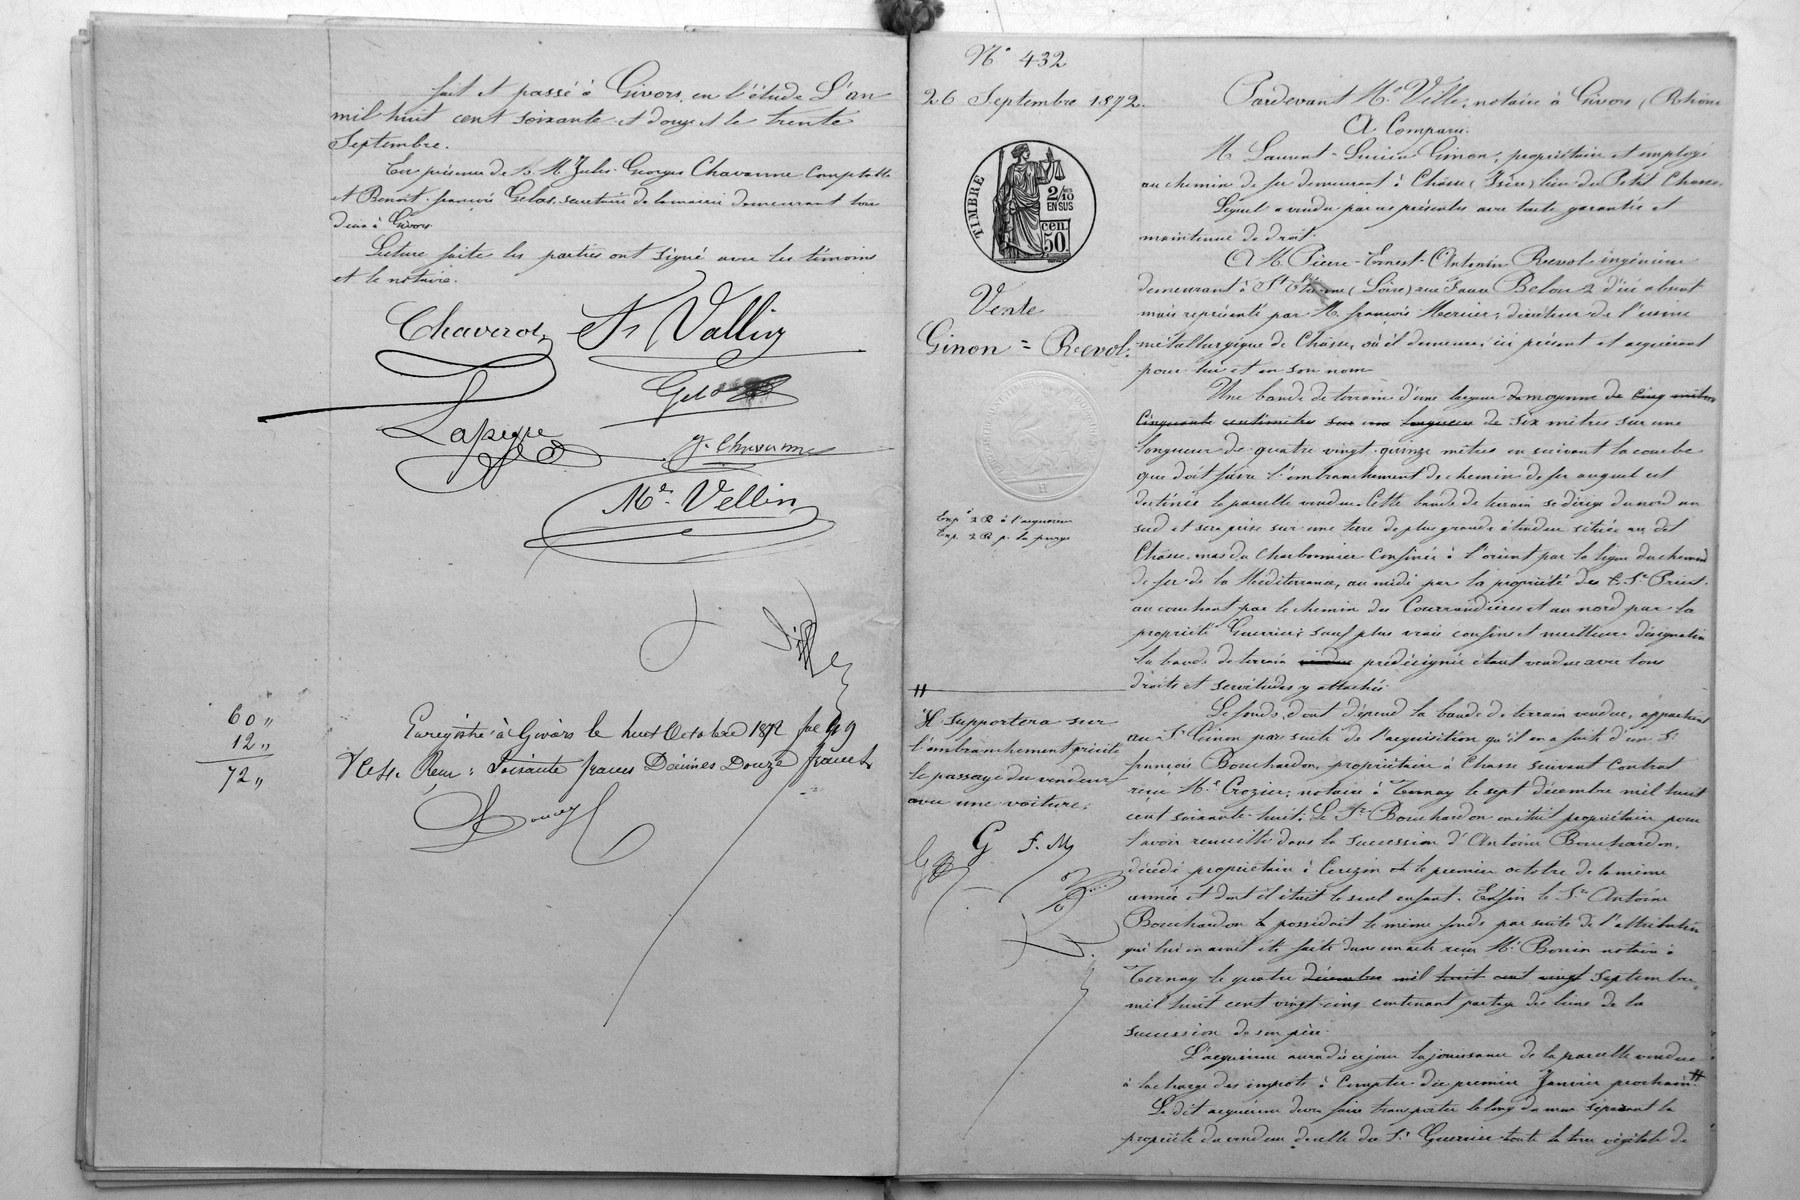 fait et passé à Givors, en l'étude L'an
mil huit cent soixante et douze et le trente
Septembre.
En présence de M. M. Jules Georges Chavanne Comptable
et Benoit François Gelas, secrétaire de la mairie demeurant tous
deux à Givors
Lecture faite les parties ont signé avec les témoins
et le notaire.
Chaverot A. Vallin
Gelas
Lapeyre
J. Chavanne
Mr. Vellin
60 "
12 "
72 "
Enregistré à Givors le huit Octobre 1872 fol 49
Reçu : Soixante francs Décimes Douze francs
N° 432
26 Septembre 1872.
TIMBRE
2/10
EN SUS
cen.
50.
Vente
Ginon = Revol.
Exp. 2 R à l'acquéreur
Exp. 2 R p. la purge
H Il supportera sur
l'embranchement précité
le passage du vendeur
avec une voiture.
G F. M
Pardevant Me Ville, notaire à Givors (Rhône
A Comparu.
M. Laurent-Lucien Ginon, propriétaire et employé
au chemin de fer demeurant à Chasse (Isère) lieu du Petit Chasse.
Lequel a vendu par ces présentes avec toute garantie et
maintenue de droit.
A M. Pierre-Ernest-Antonin Revol ingénieur
demeurant à St Etienne (Loire) rue 2 d'ici absent
mais représenté par M. François Mercier, directeur de l'usine
métallurgique de Chasse, où il demeure, ici présent et acquérant
pour lui et en son nom
Une bande de terrain d'une largeur moyenne de cinq mètres
cinquante centimètres sur une longueur de six mètres sur une
longueur de quatre vingt quinze mètres en suivant la courbe
que doit faire l'embranchement de chemin de fer auquel est
destinée la parcelle vendue. Cette bande de terrain se dirige du nord au
sud et sera prise sur une terre de plus grande étendue située au dit
Chasse mas du Charbonnier Confinée à l'orient par la ligne du chemin
de fer de la Méditerranée, au midi par la propriété des St Priest.
au couchant par le chemin des Courrandières et au nord par la
propriété Guerrier, sauf plus vrais confins et meilleure désignation
la bande de terrain vendue prédésignée étant vendue avec tous
droits et servitudes y attachés
Le fonds, dont dépend la bande de terrain vendue, appartient
au Sr Ginon par suite de l'acquisition qu'il en a faite d'un Sr
François Bouchardon, propriétaire à Chasse suivant Contrat
reçu Me Crozier, notaire à Ternay le sept décembre mil huit
cent soixante huit. Le Sr Bouchardon en était propriétaire pour
l'avoir recueilli dans la succession d'Antoine Bouchardon,
décédé propriétaire à le premier octobre de la même
année et dont il était le seul enfant. Enfin le Sr Antoine
Bouchardon possédait le même fonds par suite de l'attribution
qui lui en avait été faite dans un acte reçu Me notaire à
Ternay le quatre décembre mil huit cent vingt Septembre
mil huit cent vingt-cinq contenant partage des biens de la
succession de son père.
L'acquéreur aura dès ce jour la jouissance de la parcelle vendue
à la charge des impôts à Compter du premier Janvier prochain. H
Le dit acquéreur devra faire transporter le long du mur séparant la
propriété du vendeur de celle du Sr Guerrier toute la terre végétale de